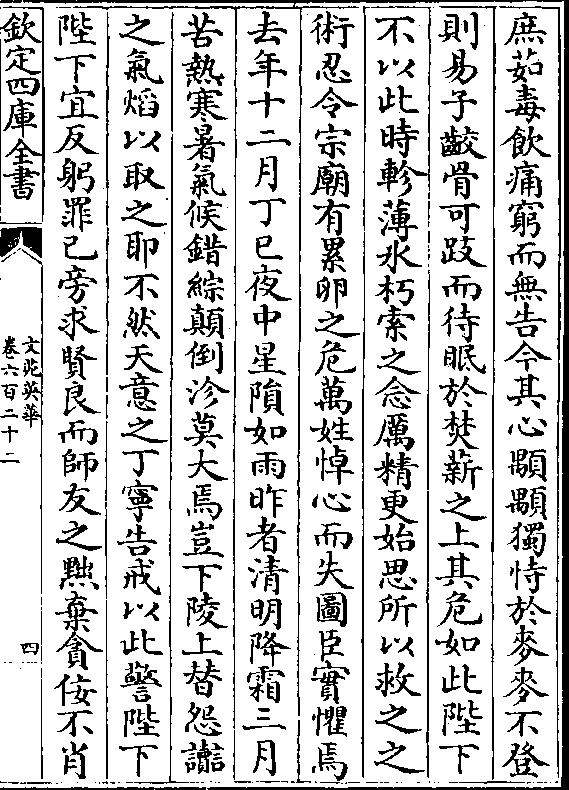 庶茹毒飲痛窮而無告今其心顒顒獨恃於麥麥不登
則易子齩骨可跂而待眠於焚薪之上其危如此陛下
不以此時軫薄氷朽索之念厲精更始思所以救之之
術忍令宗廟有累卵之危萬姓悼心而失圖臣實懼焉
去年十二月丁巳夜中星隕如雨昨者清明降霜三月
苦熱寒暑氣候錯綜顛倒沴莫大焉豈下陵上替怨讟
之氣熖以取之耶不然天意之丁寧告戒以此警陛下
陛下宜反躬罪己旁求賢良而師友之㸃棄貪佞不肖
欽定四庫全書
文苑英華
卷六百二十二
四